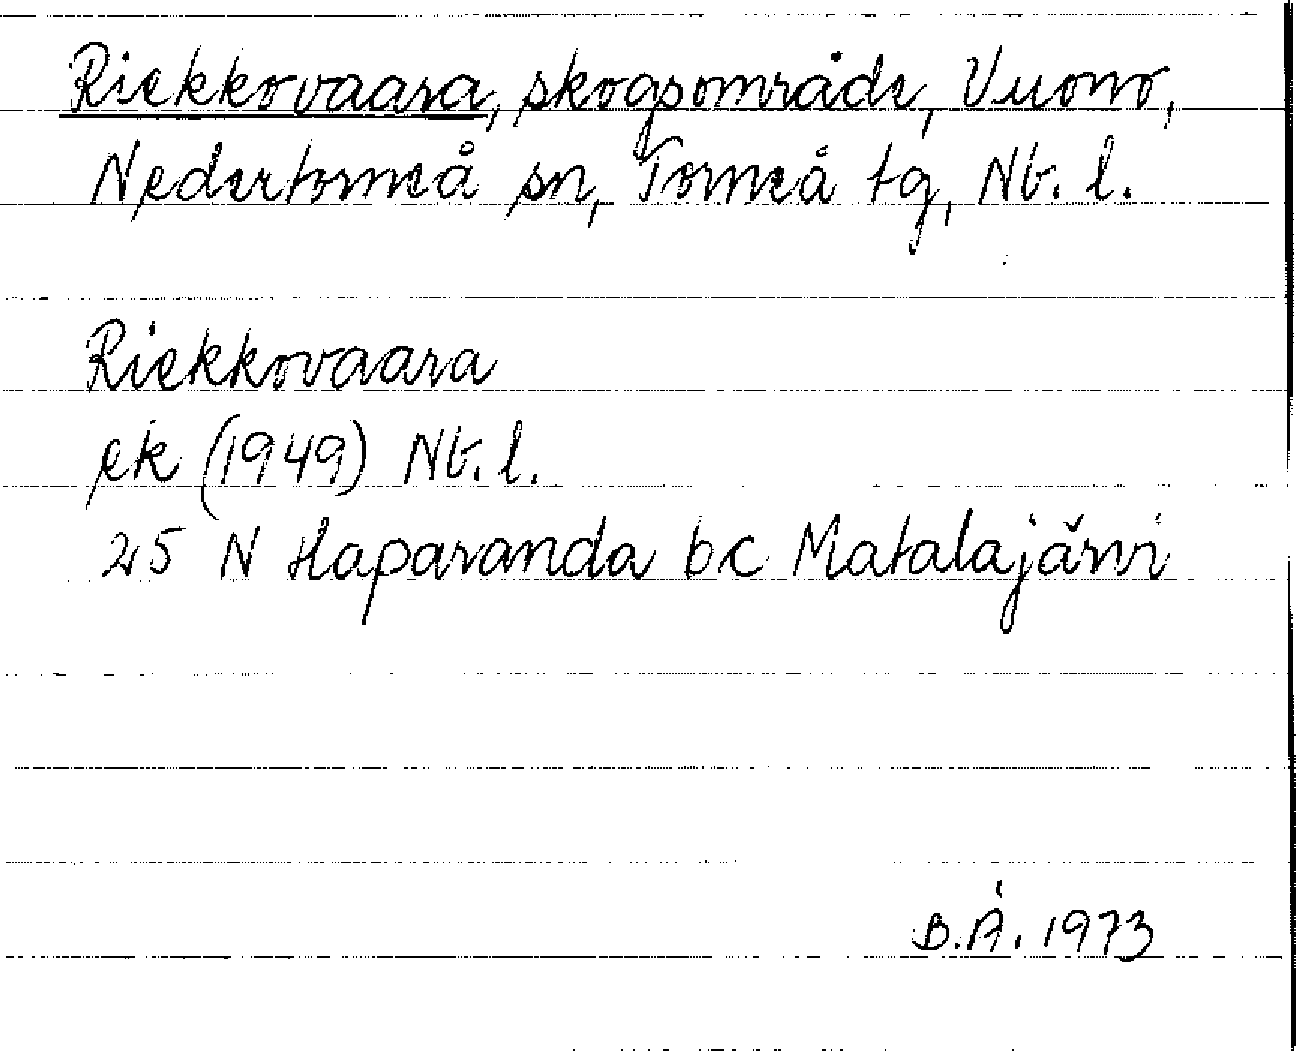 Riekkovaara, skogsområde, Vuono,
Nedertorneå sn, Torneå tg, Nb. l.
Riekkovaara
ek (1949) Nb. l.
25 N Haparanda bc Matalajärvi
B.Å. 1973